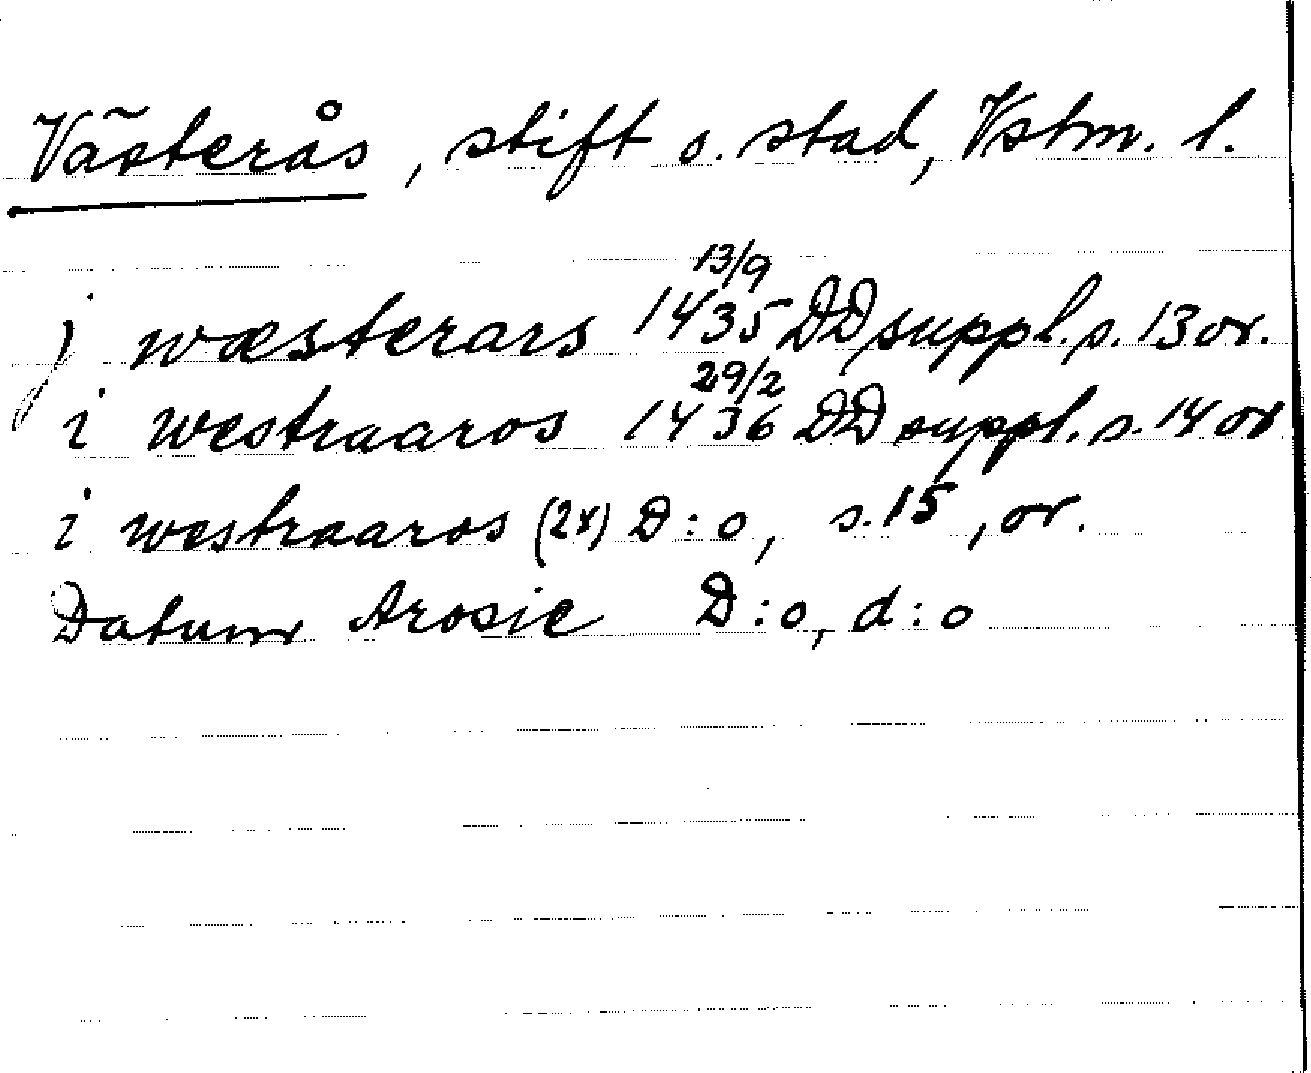 Västerås, stift o. stad, Vstm. l.
j wæsterars 13/9 1435 DD suppl. s. 13 or.
i westraaros 29/2 1436 DD suppl. s. 14 or
i westraaros (2x) D:o, s. 15, or.
Datum Arosie D:o, d:o